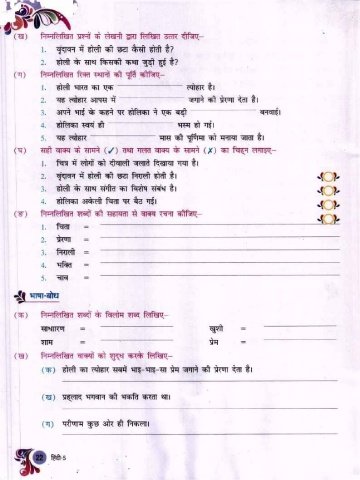 (ख) निम्नलिखित प्रश्नों के लेखनी द्वारा लिखित उत्तर दीजिए–
1. वृंदावन में होली की छटा कैसी होती है?
2. होली के साथ किसकी कथा जुड़ी हुई है?
(ग) निम्नलिखित रिक्त स्थानों की पूर्ति कीजिए–
1. होली भारत का एक ____________ त्योहार है।
2. यह त्योहार आपस में ____________ जगाने की प्रेरणा देता है।
3. अपने भाई के कहने पर होलिका ने एक बड़ी ____________ बनवाई।
4. होलिका स्वयं ही ____________ भस्म हो गई।
5. यह त्योहार ____________ मास की पूर्णिमा को मनाया जाता है।
(घ) सही वाक्य के सामने (✓) तथा गलत वाक्य के सामने (✗) का चिह्न लगाइए–
1. चित्र में लोगों को दीवाली जलाते दिखाया गया है।
2. वृंदावन में होली की छटा निराली होती है।
3. होली के साथ संगीत का विशेष संबंध है।
4. होलिका अकेली चिता पर बैठ गई।
(ङ) निम्नलिखित शब्दों की सहायता से वाक्य रचना कीजिए–
1. चिता = ____________
2. प्रेरणा = ____________
3. निराली = ____________
4. भक्ति = ____________
5. चाव = ____________
भाषा-बोध
(क) निम्नलिखित शब्दों के विलोम शब्द लिखिए–
साधारण = ____________ खुशी = ____________
शाम = ____________ प्रेम = ____________
(ख) निम्नलिखित वाक्यों को शुद्ध करके लिखिए–
(क) होली का त्योहार सबमें भाइ-भाइ-सा प्रेम जगाने की प्रेरणा देता है।
(ख) प्रह्लाद भगवान की भकति करता था।
(ग) परीणाम कुछ ओर ही निकला।
22 हिंदी-5